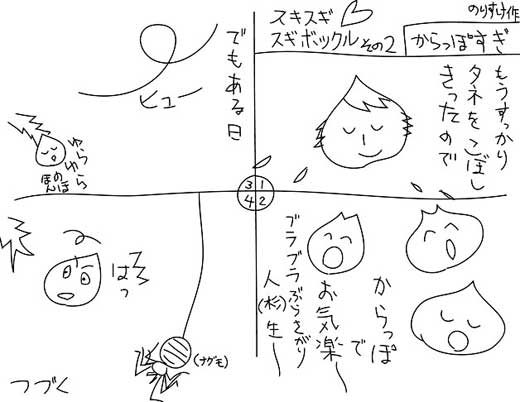 のりすけ作
スキスギ
スギボックル その2
からっぽすぎ
もうすっかり
タネをこぼし
きったので
からっぽ
で
お気楽〜
ブラブラぶらさがり
人(杉)生〜
でもある日
ヒュー
ゆら
ゆら
のほ
ほん
はっ
(ナグモ)
つづく
3 1
4 2